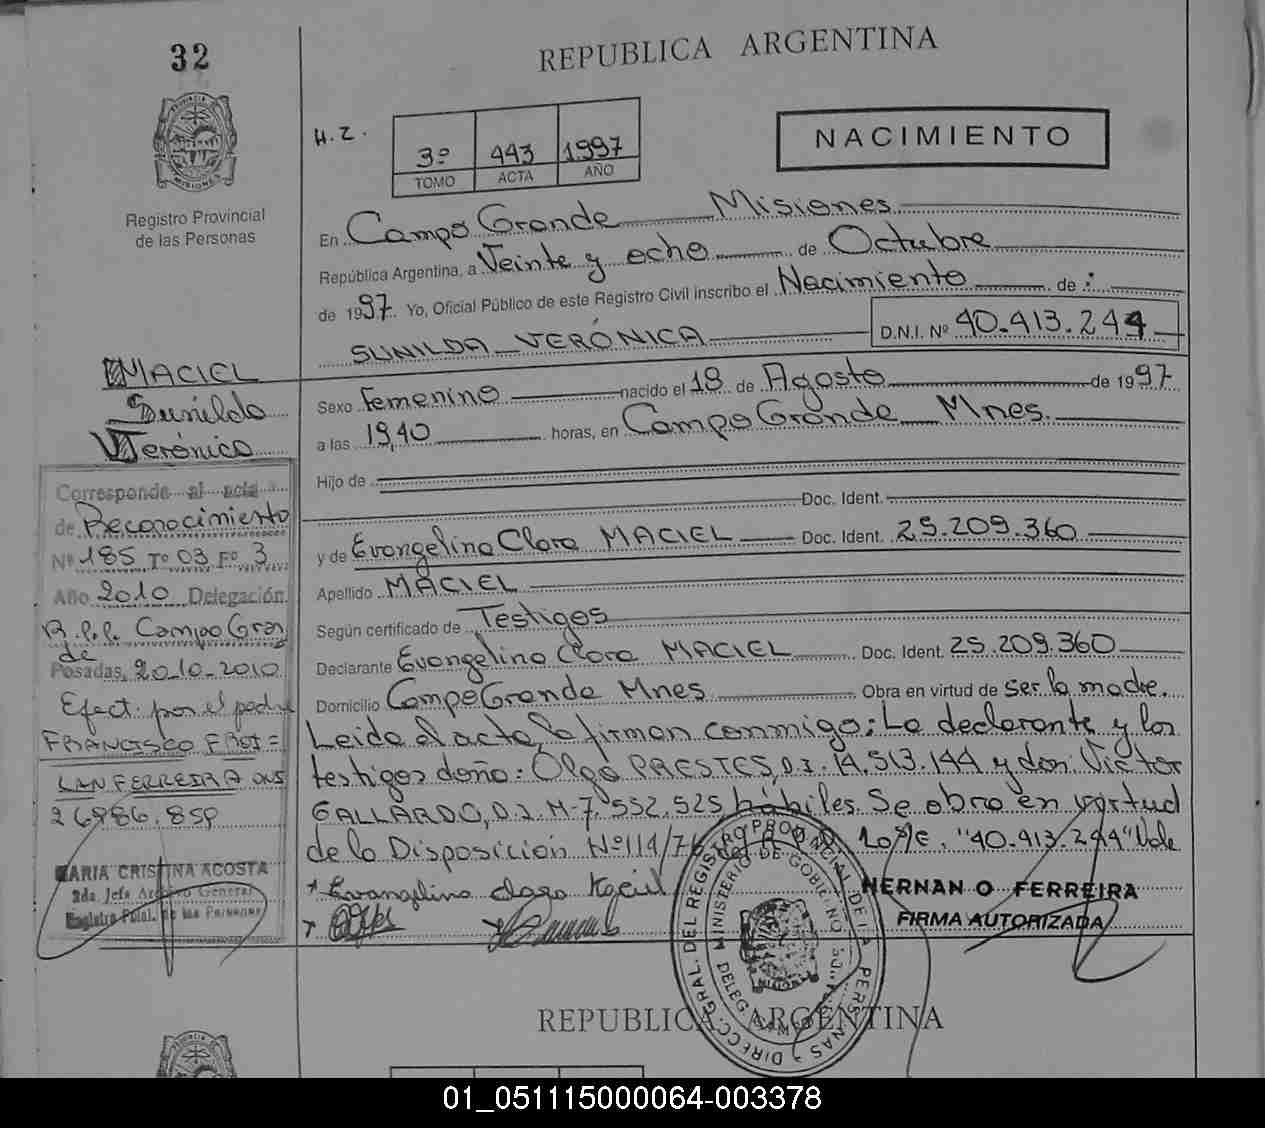 32
REPUBLICA ARGENTINA
PROVINCIA DE
MISIONES
Registro Provincial
de las Personas
H.Z.
3º 443 1.997
TOMO ACTA AÑO
NACIMIENTO
En Campo Grande Misiones
República Argentina, a Veinte y ocho de Octubre
de 1997. Yo, Oficial Público de este Registro Civil inscribo el Nacimiento de :
SUNILDA VERÓNICA D.N.I. Nº 40.413.244
MACIEL
Sunilda
Verónica
Sexo Femenino nacido el 18 de Agosto de 1997
a las 19,40 horas, en Campo Grande Mnes.
Hijo de
Doc. Ident.
y de Evangelina Clara MACIEL Doc. Ident. 25.209.360
Apellido MACIEL
Según certificado de Testigos
Declarante Evangelina Clara MACIEL Doc. Ident. 25.209.360
Domicilio Campo Grande Mnes Obra en virtud de ser la madre.
Leida el acta, la firman conmigo: La declarante y los
testigos doña: Olga PRESTES, D.I. 14.513.144 y don: Victor
GALLARDO, D.I. M-7.552.525, hábiles. Se obra en virtud
de la Disposición Nº 114/76 "40.413.244" Vale
Evangelina
HERNAN O FERREIRA
FIRMA AUTORIZADA
Corresponde al acta
de Reconocimiento
Nº 185 Tº 03 Fº 3
Año 2010 Delegación
R.P.P. Campo Gran
de
Posadas, 20-10-2010
Efect. por el padre
FRANCISCO FROI=
LAN FERREIRA DNI
26986.859
MARIA CRISTINA ACOSTA
2da. Jefa Archivo General
Registro Pcial. de las Personas
DIRECC. GRAL. DEL REGISTRO PROVINCIAL DE LA PERSONAS
MINISTERIO DE GOBIERNO
DELEG.
REPUBLICA ARGENTINA
01_051115000064-003378